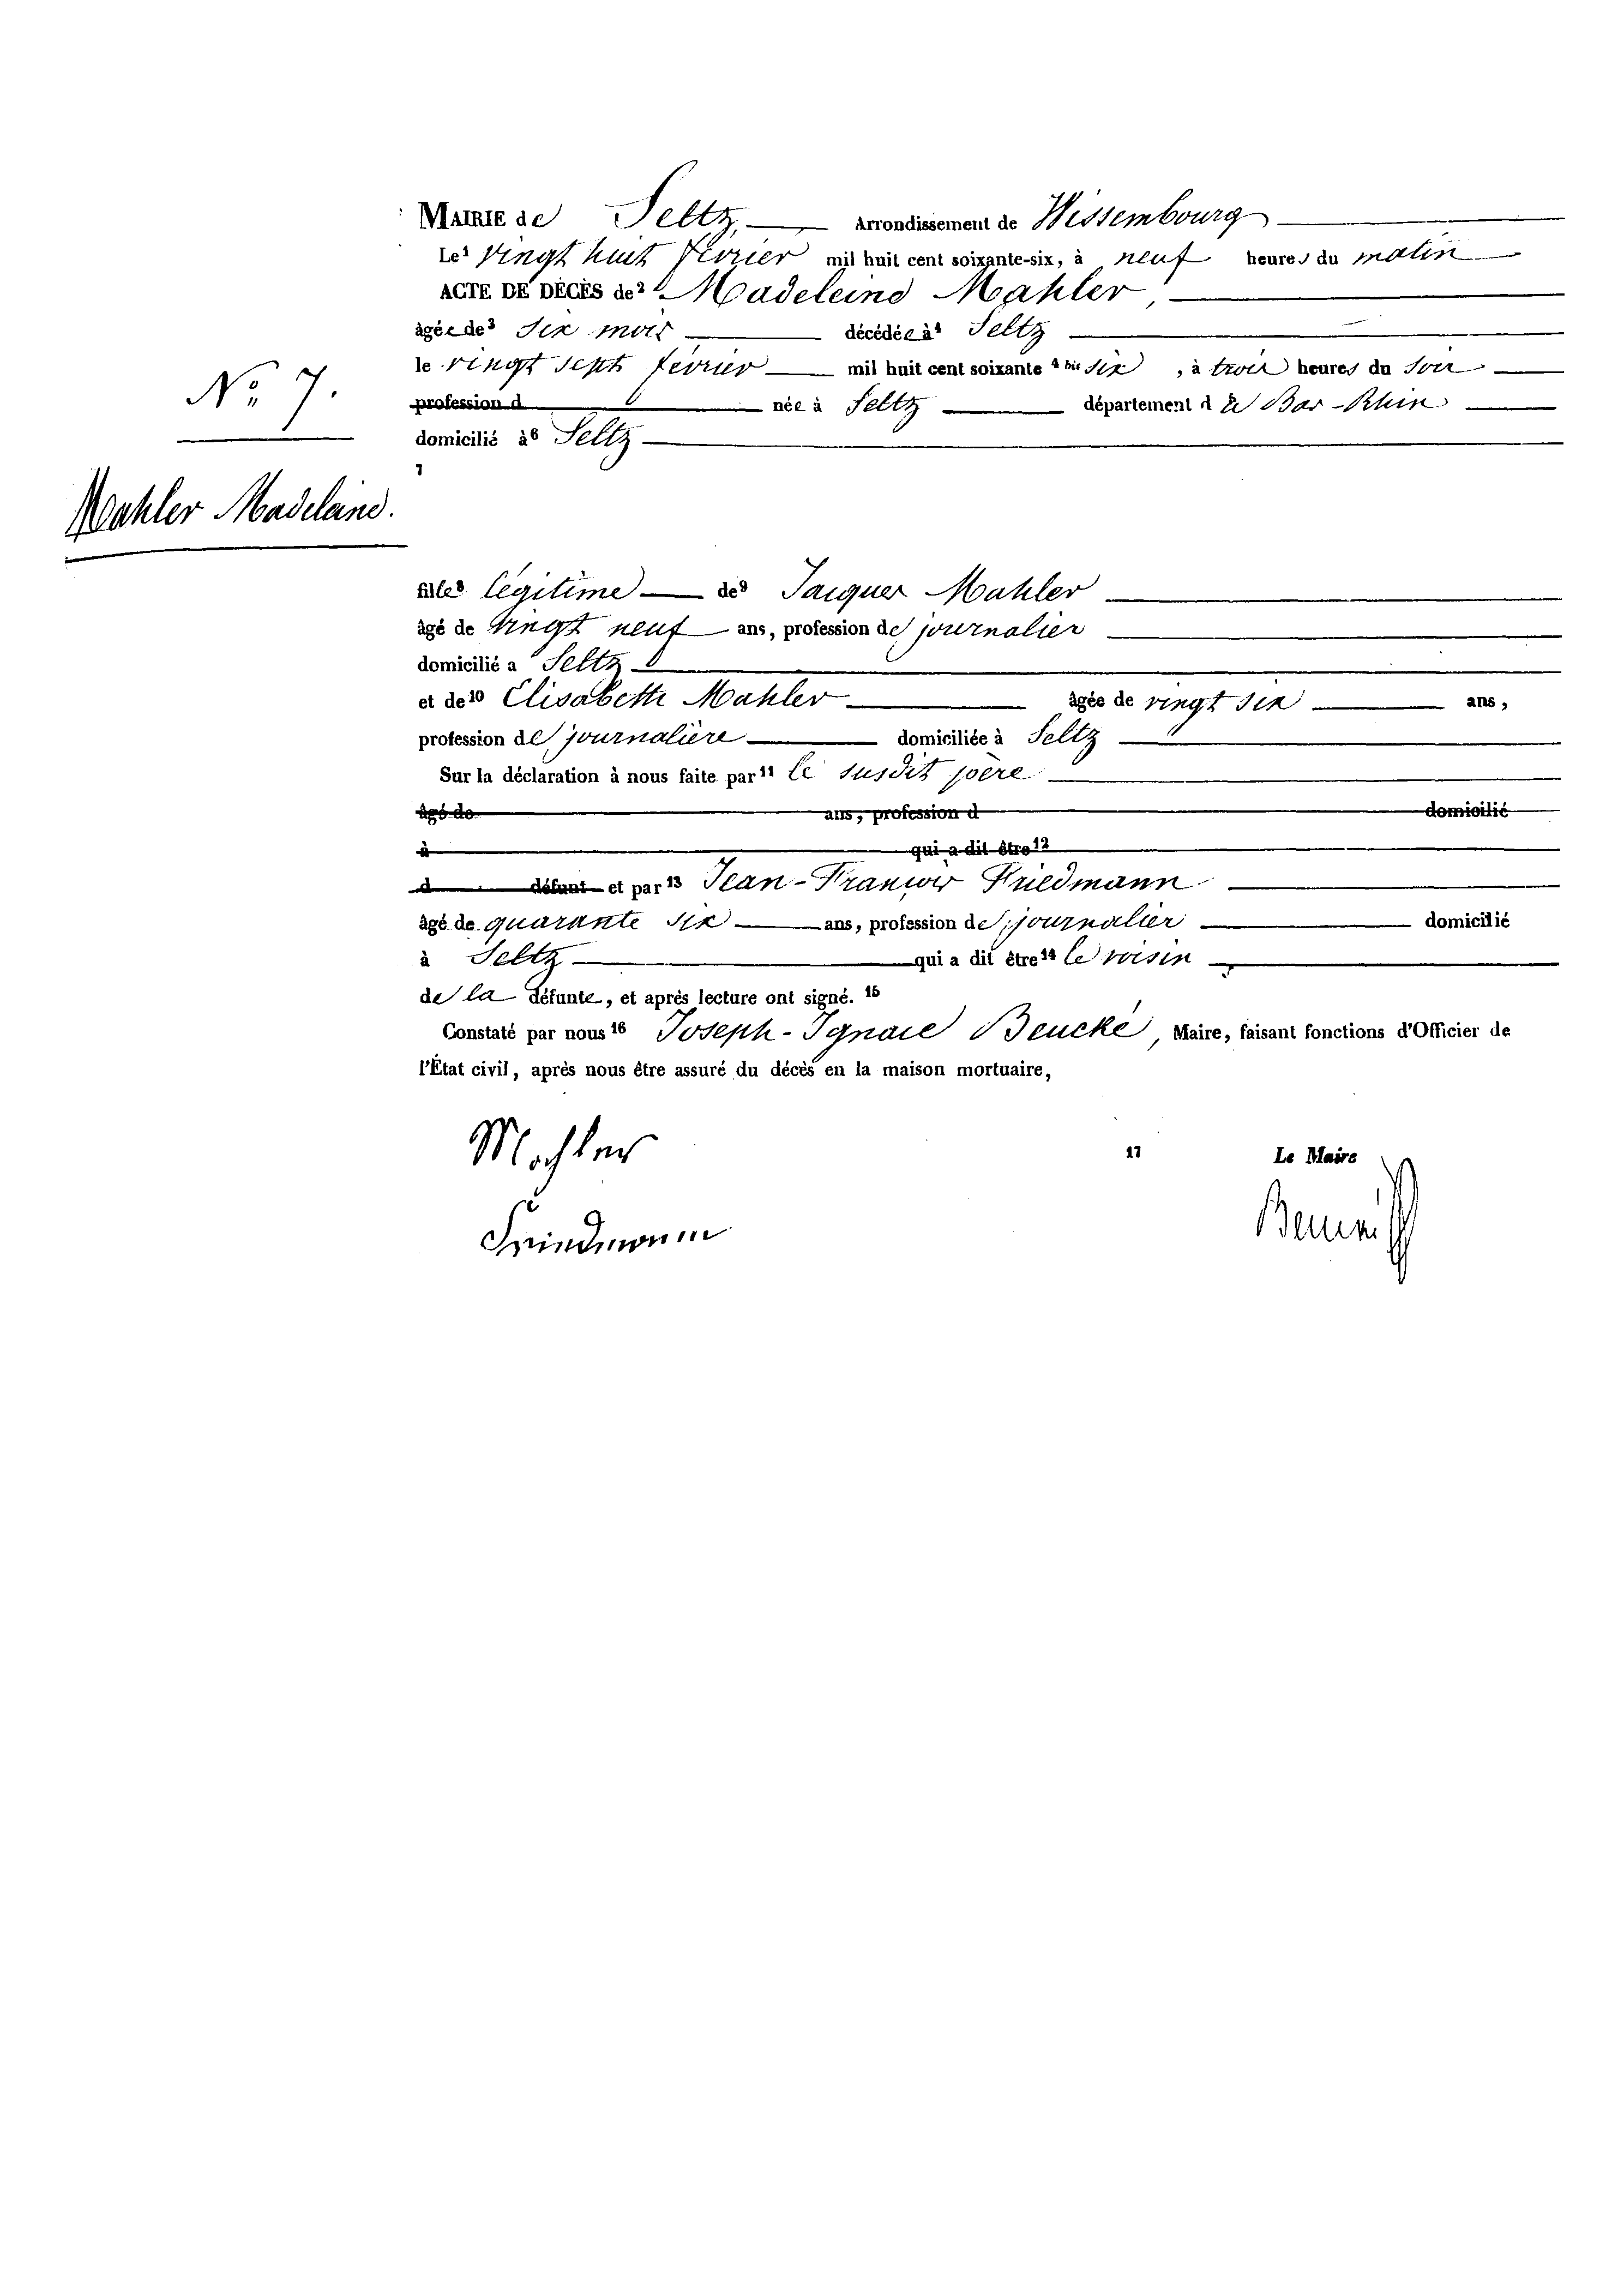 Mairie de Seltz, Arrondissement de Wissembourg
Le¹ vingt huit février mil huit cent soixante-six, à neuf heures du matin
ACTE DE DÉCÈS de² Madeleine Mahler,
âgée de³ six mois décédée à⁴ Seltz
le vingt sept février mil huit cent soixante ⁴ bis six, à trois heures du soir
profession d née à Seltz département de Bas-Rhin
domicilié à⁶ Seltz
7
N° 7.
Mahler Madeleine.
fille⁸ légitime de⁹ Jacques Mahler
âgé de vingt neuf ans, profession de journalier
domicilié a Seltz
et de¹⁰ Elisabeth Mahler âgée de vingt six ans,
profession de journalière domiciliée à Seltz
Sur la déclaration à nous faite par¹¹ le susdit père
âgé de ans, profession d domicilié
à qui a dit être¹²
d défunt et par¹³ Jean-François Friedmann
âgé de quarante six ans, profession de journalier domicilié
à Seltz qui a dit être¹⁴ le voisin
de la défunte, et après lecture ont signé. ¹⁵
Constaté par nous¹⁶ Joseph-Ignace Beucké, Maire, faisant fonctions d'Officier de
l'État civil, après nous être assuré du décès en la maison mortuaire,
Mahler
17 Le Maire
Friedmann